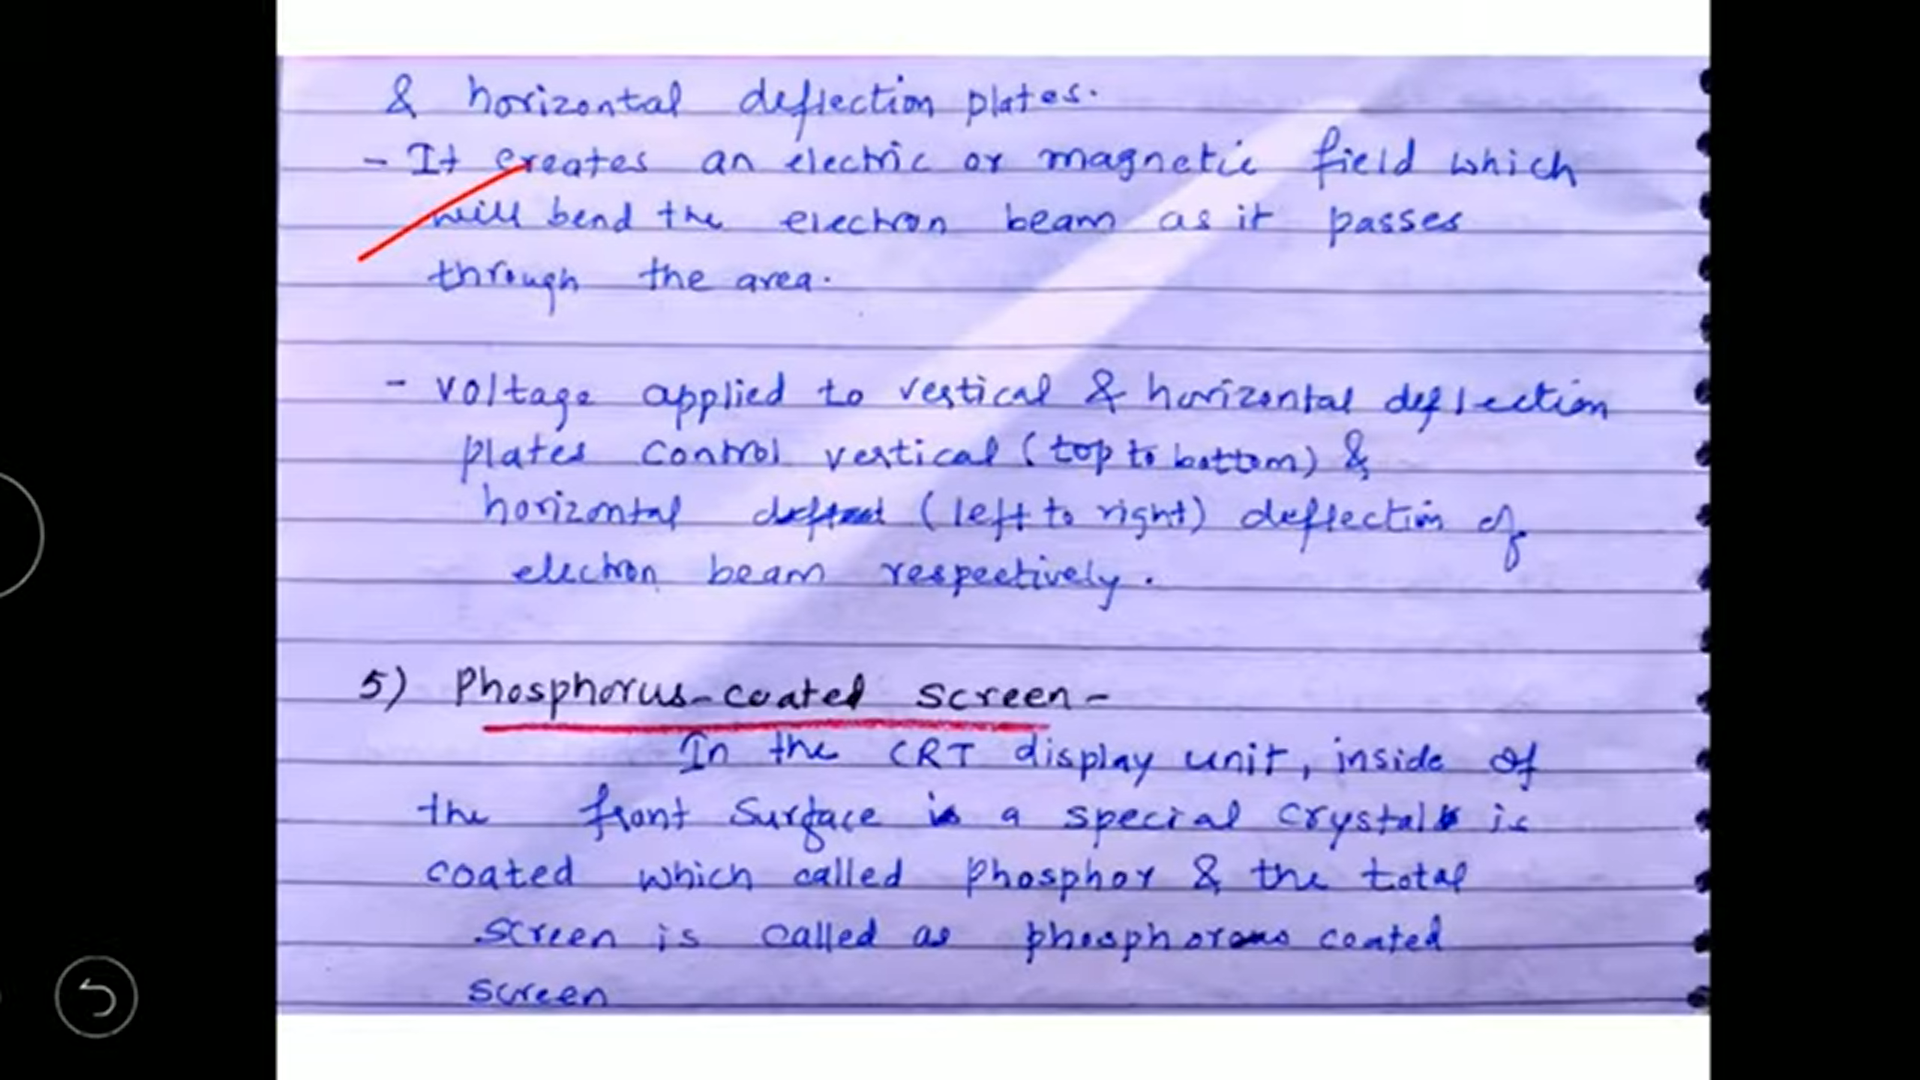 & horizontal deflection plates.
- It creates an electric or magnetic field which
will bend the electron beam as it passes
through the area.
- voltage applied to vertical & horizontal deflection
plates control vertical (top to bottom) &
horizontal (left to right) deflection of
electron beam respectively.
5) Phosphorus-coated screen -
In the CRT display unit, inside of
the front surface is a special crystal is
coated which called phosphor & the total
screen is called as phosphorous coated
screen